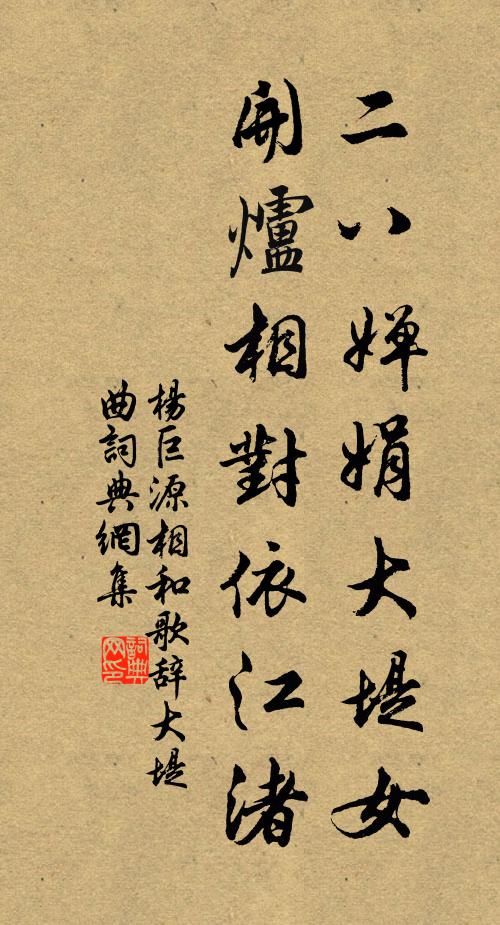 二八嬋娟大堤女
開爐相對依江渚
楊巨源相和歌辞大堤
曲詞典網集
詞典网印